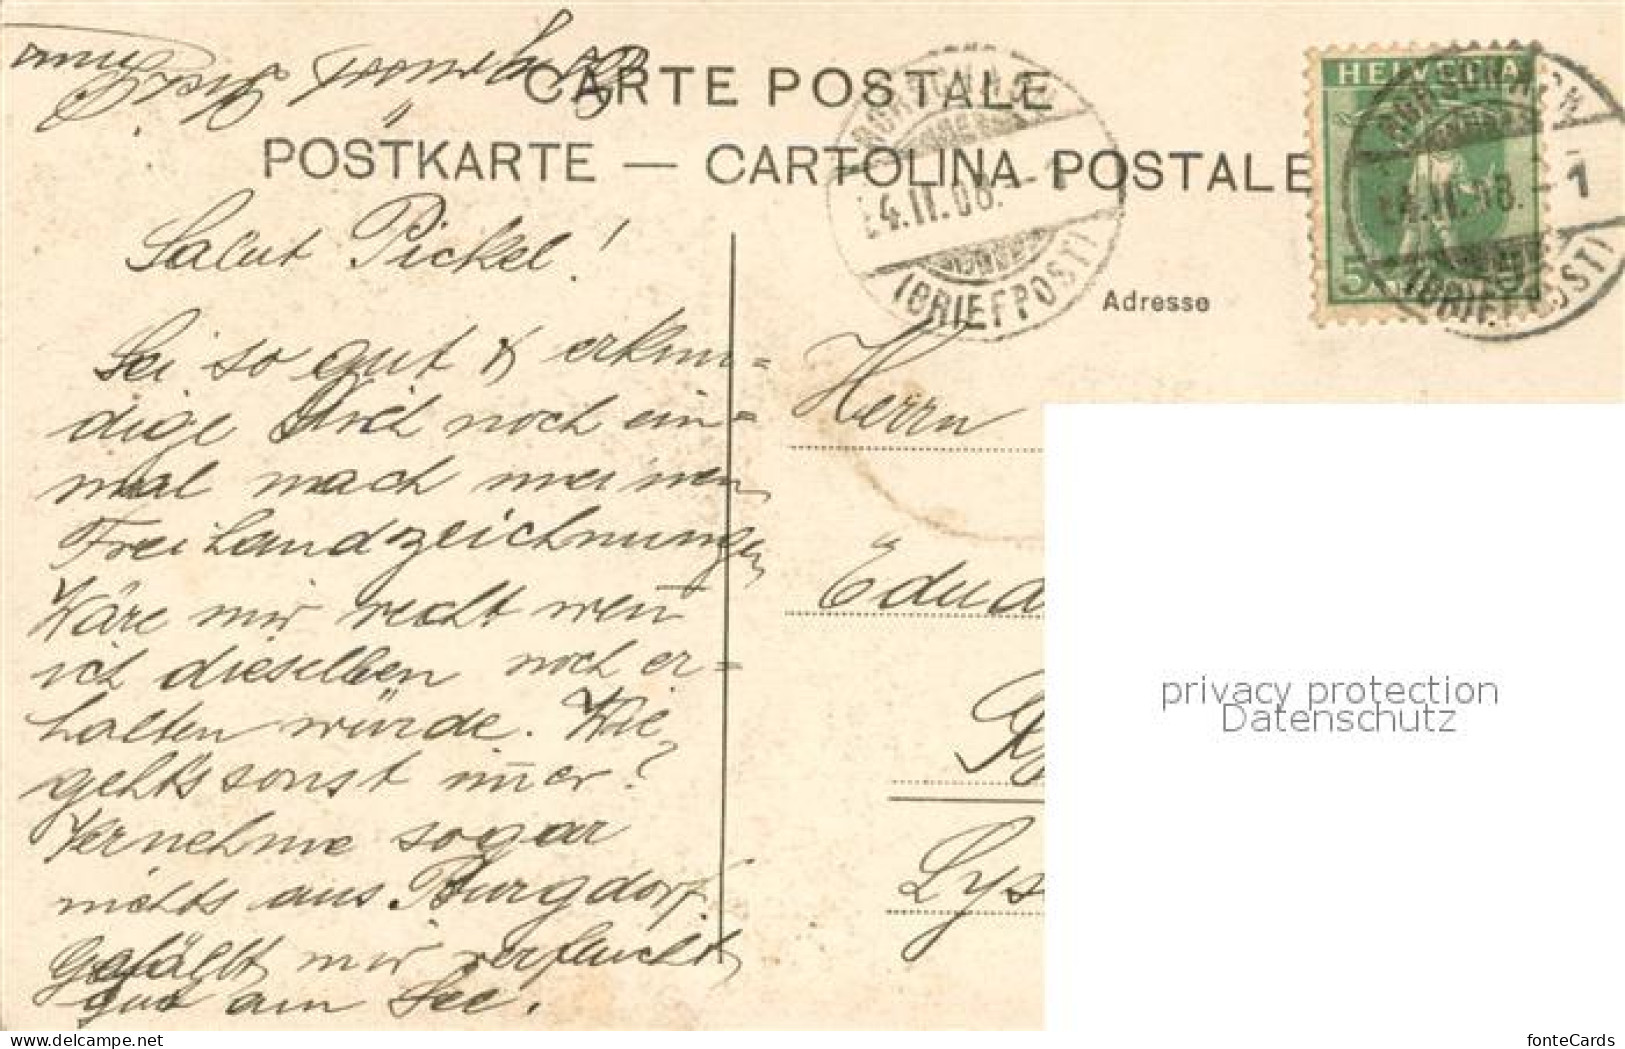 CARTE POSTALE
POSTKARTE — CARTOLINA POSTALE
HELVETIA
5
RORSCHACH
14.II.08. - 1
(BRIEFPOST)
RORSCHACH
14.II.08. - 1
(BRIEFPOST)
Adresse
Salut Pickel!
Sei so gut & erkun=
dige Dich noch ein=
mal nach meinen
Freihandzeichnungen
Wäre mir recht weñ
ich dieselben noch er=
halten würde. Wie
gehts sonst im̄er?
Vernehme sogar
nichts aus Burgdorf.
Gefällt mir verflucht
gut am See.
Herrn
Edua
Lys
privacy protection
Datenschutz
www.ansichtskartenversand.com
fonteCards